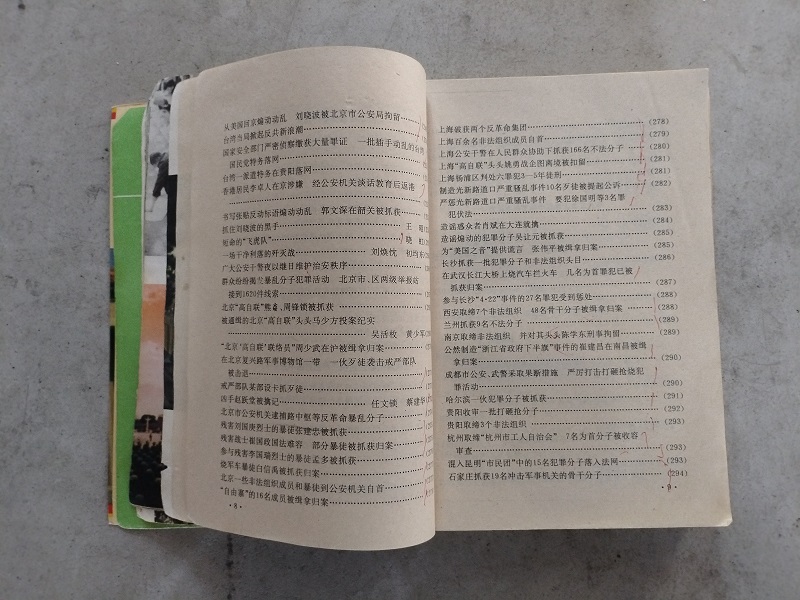 从美国回京煽动动乱　刘晓波被北京市公安局拘留
台湾当局掀起反共新浪潮
国家安全部门严密侦察缴获大量罪证　一批插手动乱的台湾
国民党特务落网
台湾一派遣特务在贵阳落网
香港居民李卓人在京涉嫌　经公安机关谈话教育后返港
书写张贴反动标语煽动动乱　郭文深在韶关被抓获
抓住刘晓波的黑手
短命的“飞虎队”
一场干净利落的歼灭战　刘焕忱
广大公安干警夜以继日维护治安秩序
群众纷纷揭兰暴乱分子犯罪活动　北京市、区两级举报站
接到1620件线索
北京“高自联”熊　、周锋锁被抓获
被通缉的北京“高自联”头头马少方投案纪实
吴活牧　黄少军
“北京‘高自联’联络员”周少武在沪被缉拿归案
在北京复兴路军事博物馆一带　一伙歹徒袭击戒严部队
被击退
戒严部队某部设卡抓歹徒
凶手赵跃堂被擒记　任文锁　蔡建华
北京市公安机关逮捕路中枢等反革命暴乱分子
残害刘国庚烈士的暴徒张建忠被抓获
残害战士根国政国法难容　部分暴徒被抓获归案
参与残害李国瑞烈士的暴徒孟多被抓获
烧军车暴徒白信禹被抓获归案
北京一些非法组织成员和暴徒到公安机关自首
“自由寨”的16名成员被缉拿归案
· 8 ·
上海破获两个反革命集团 (278)
上海百余名非法组织成员自首 (279)
上海公安干警在人民群众协助下抓获166名不法分子 (280)
上海“高自联”头头姚勇战企图离境被扣留 (281)
上海杨浦区判处六罪犯3—5年徒刑 (281)
制造光新路道口严重骚乱事件10名歹徒被提起公诉 (282)
严惩光新路道口严重骚乱事件　要犯徐国明等3名罪
犯伏法 (283)
造谣惑众者肖斌在大连就擒 (284)
造谣煽动的犯罪分子吴让元被抓获 (285)
为“美国之音”提供谎言　张伟平被缉拿归案 (285)
长沙抓获一批犯罪分子和非法组织头目 (286)
在武汉长江大桥上烧汽车拦火车　几名为首罪犯已被
抓获归案 (287)
参与长沙“4·22”事件的27名罪犯受到惩处 (288)
西安取缔7个非法组织　48名骨干分子被缉拿归案 (288)
兰州抓获9名不法分子 (289)
南京取缔非法组织　并对其头头陈学东刑事拘留 (289)
公然制造“浙江省政府下半旗”事件的崔建昌在南昌被缉
拿归案 (290)
成都市公安、武警采取果断措施　严厉打击打砸抢烧犯
罪活动 (290)
哈尔滨一伙犯罪分子被抓获 (291)
贵阳收审一批打砸抢分子 (292)
贵阳取缔3个非法组织 (293)
杭州取缔“杭州市工人自治会”　7名为首分子被收容
审查 (293)
混入昆明“市民团”中的15名犯罪分子落入法网 (293)
石家庄抓获19名冲击军事机关的骨干分子 (294)
· 9 ·